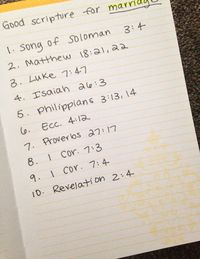 Good scripture for marriage
1. Song of Soloman 3:4
2. Matthew 18:21,22
3. Luke 7:47
4. Isaiah 26:3
5. Philippians 3:13,14
6. Ecc. 4:12
7. Proverbs 27:17
8. 1 Cor. 7:3
9. 1 Cor. 7:4
10. Revelation 2:4